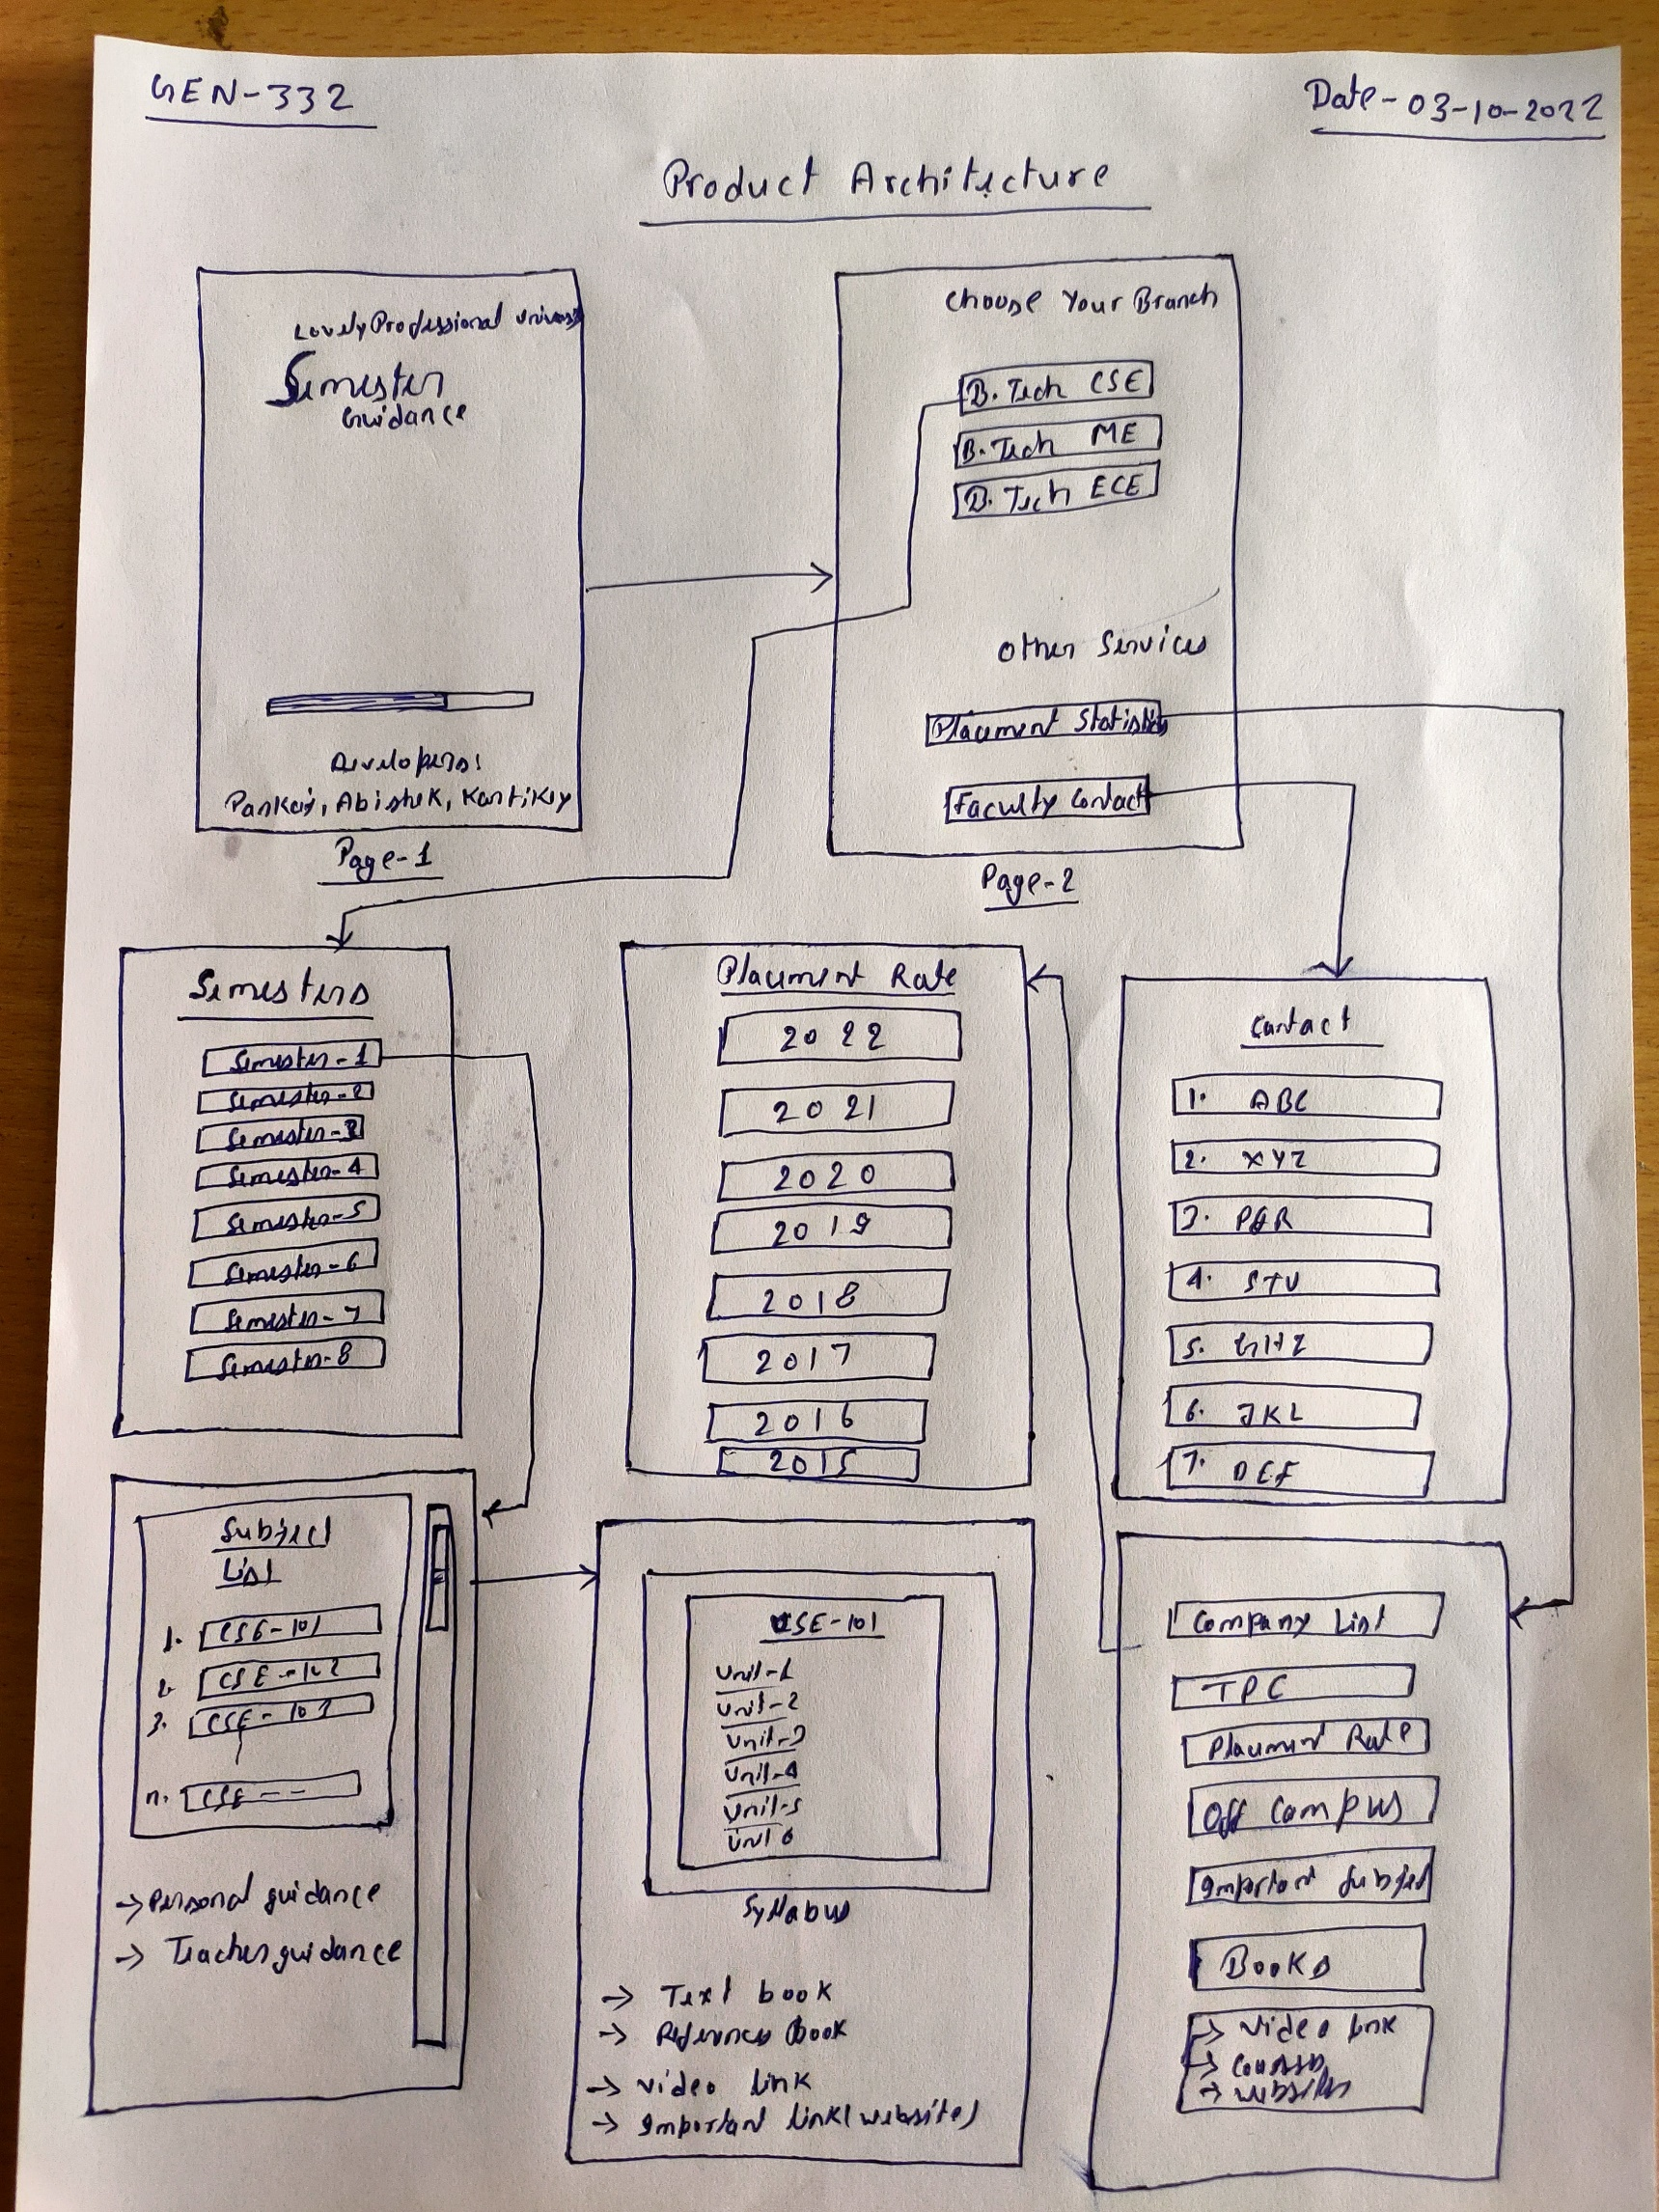 GEN-332
Date-03-10-2022
Product Architecture
Lovely Professional
Semester
Guidance
Developers:
Pankaj, Abishek, Kartikey
Page-1
Choose Your Branch
B. Tech CSE
B. Tech ME
B. Tech ECE
Other Services
Placement Statistics
Faculty Contact
Page-2
Semesters
Semester-1
Semester-2
Semester-3
Semester-4
Semester-5
Semester-6
Semester-7
Semester-8
Placement Rate
2022
2021
2020
2019
2018
2017
2016
2015
Contact
1. ABC
2. XYZ
3. PQR
4. STU
5. GHZ
6. JKL
7. DEF
Subject
List
1. CSE-101
2. CSE-102
3. CSE-103
n. CSE--
→ Personal guidance
→ Teacher guidance
CSE-101
Unit-1
Unit-2
Unit-3
Unit-4
Unit-5
Unit 6
Syllabus
→ Text book
→ References book
→ Video link
→ Important link(website)
Company List
TPC
Placement Rate
Off Campus
Important Subject
Books
→ Video link
→ Courses
→ websites